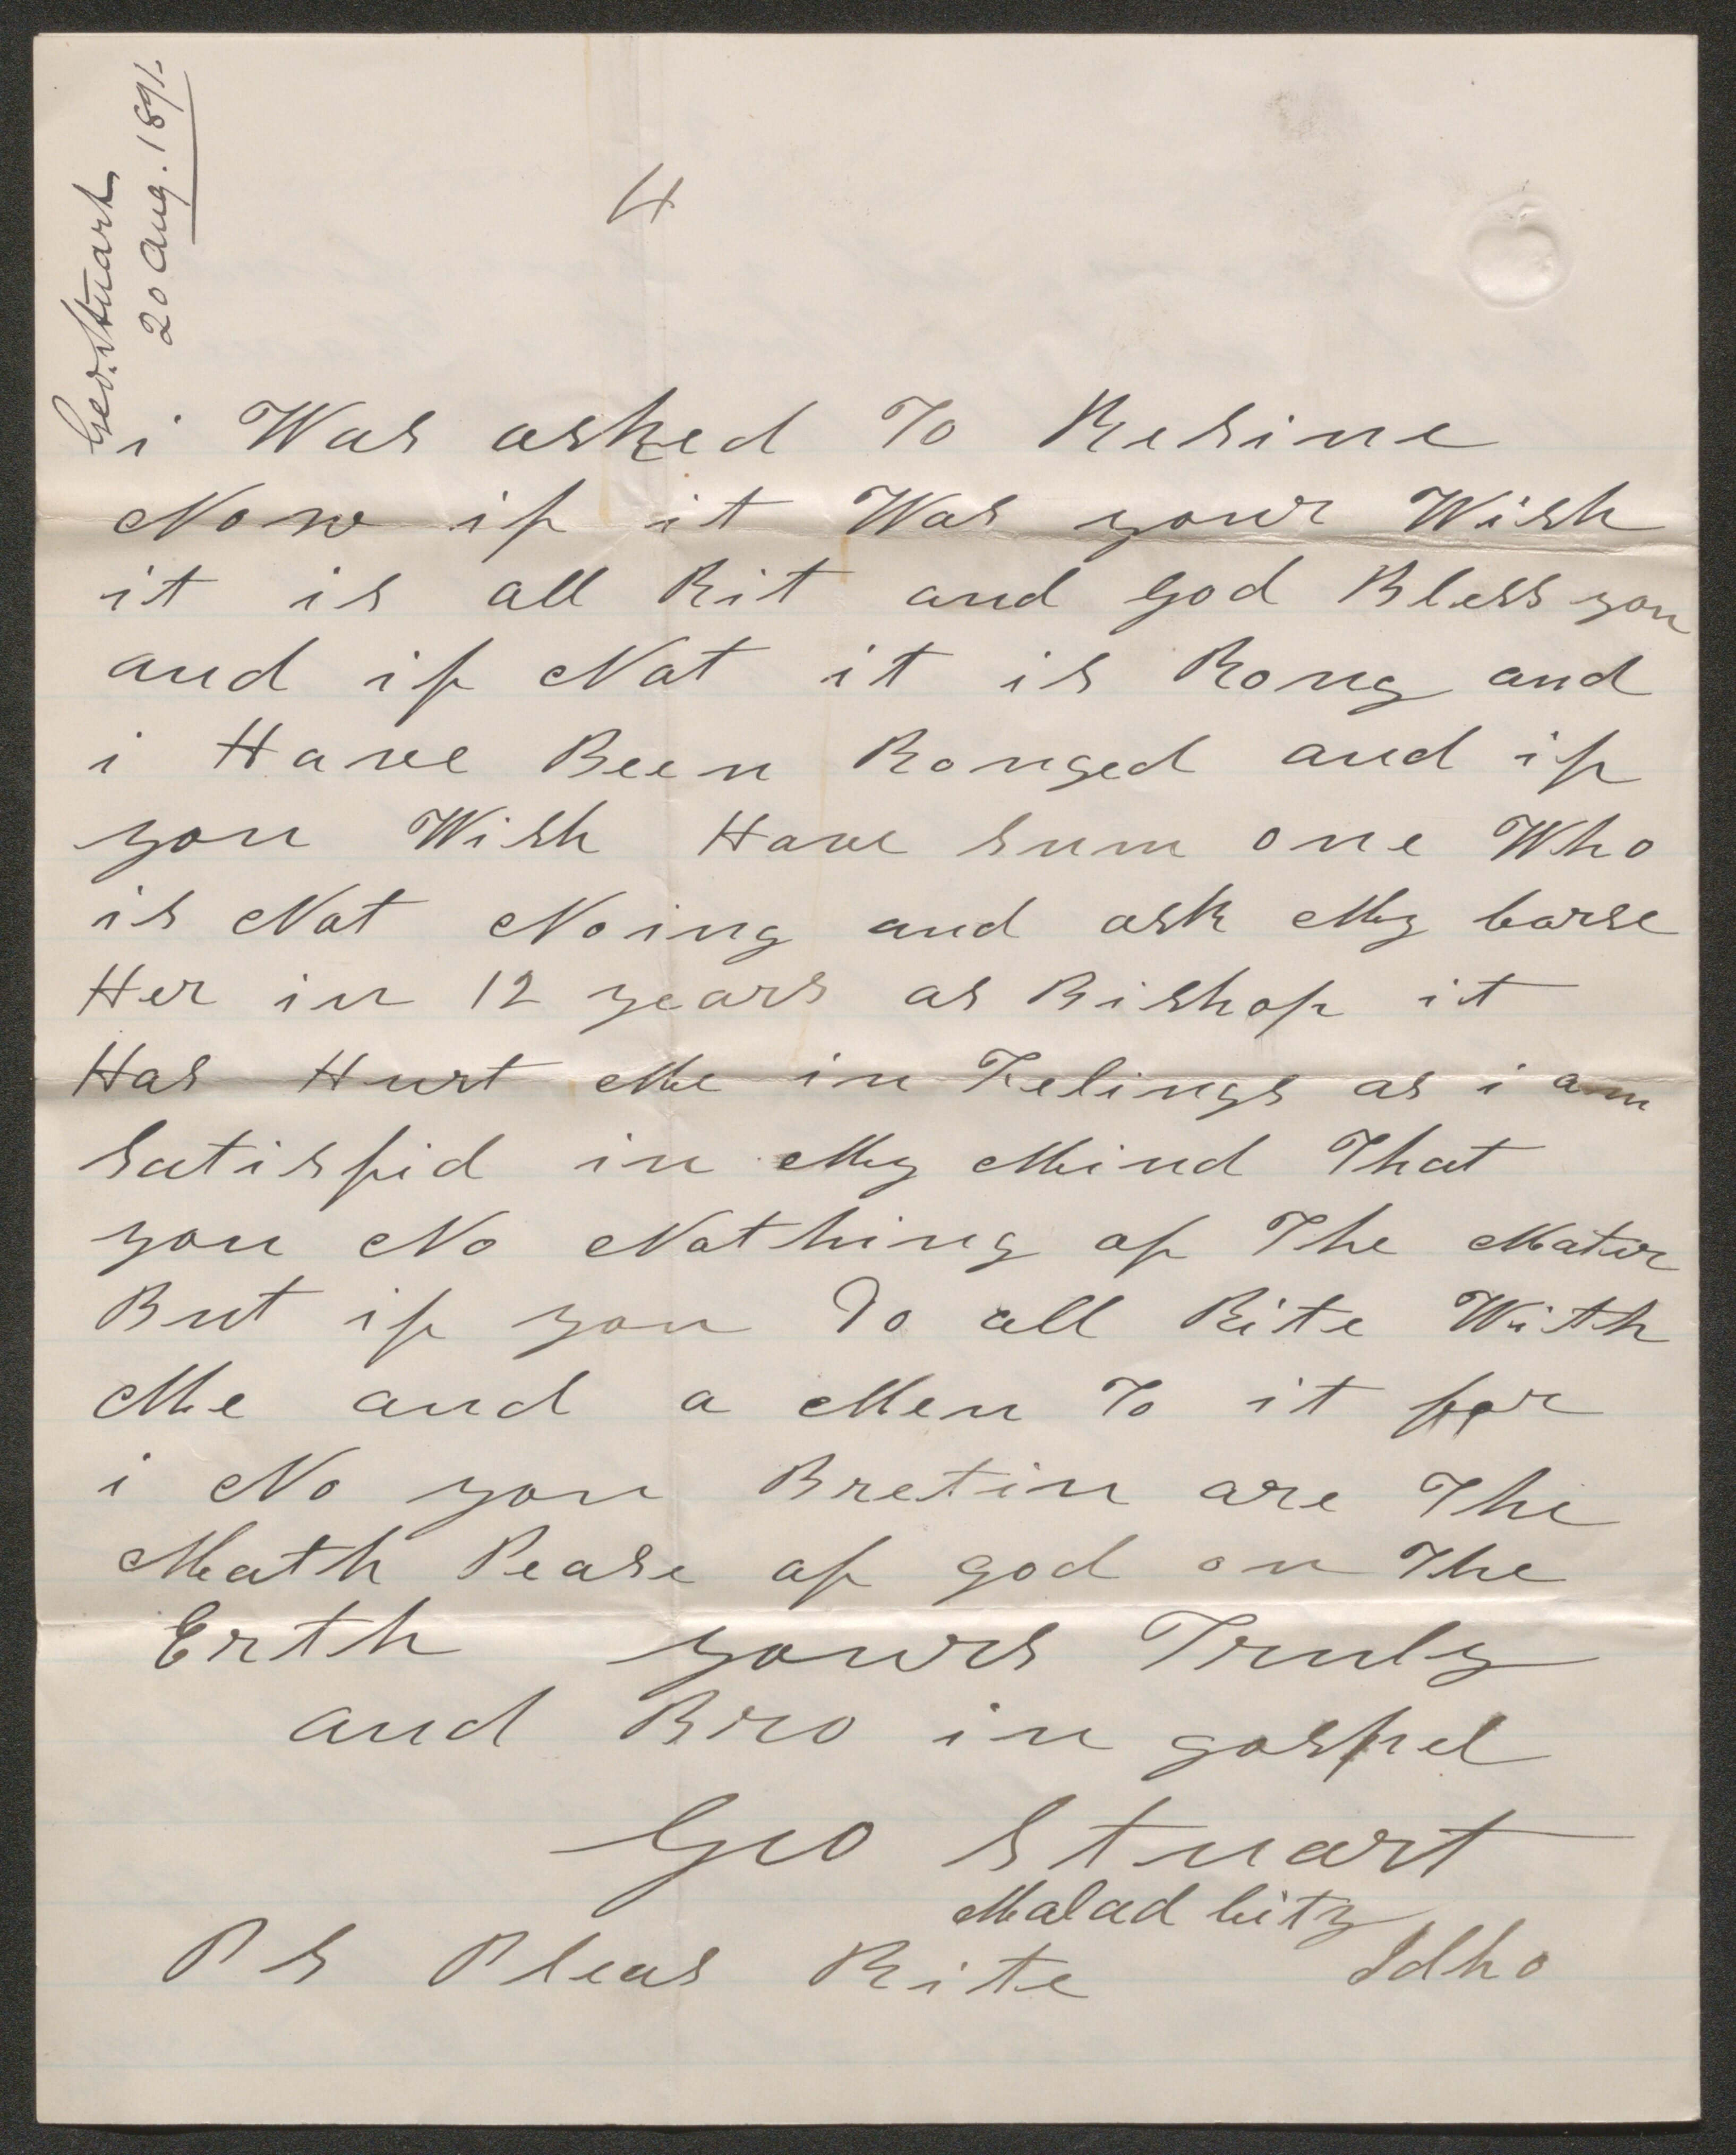 Geo. Stuart
20 Aug. 1891.
4
i Was asked To Resine
Now if it Was your Wish
it is all Rit and god Bless you
and if Not it is Rong and
i Have Been Ronged and if
you Wish Have sum one Who
is Not Noing and ask My Corse
Her in 12 years as Bishop it
Has Hurt Me in Felings as i am
Satisfid in My Mind That
you No Nothing of The Mater
But if you Do all Rite With
Me and a Men To it for
i No you Bretin are The
Math Pease of god on The
Erth yours Truly
and Bro in gospel
Geo Stuart
Malad City
Idho
P S Pleas Rite